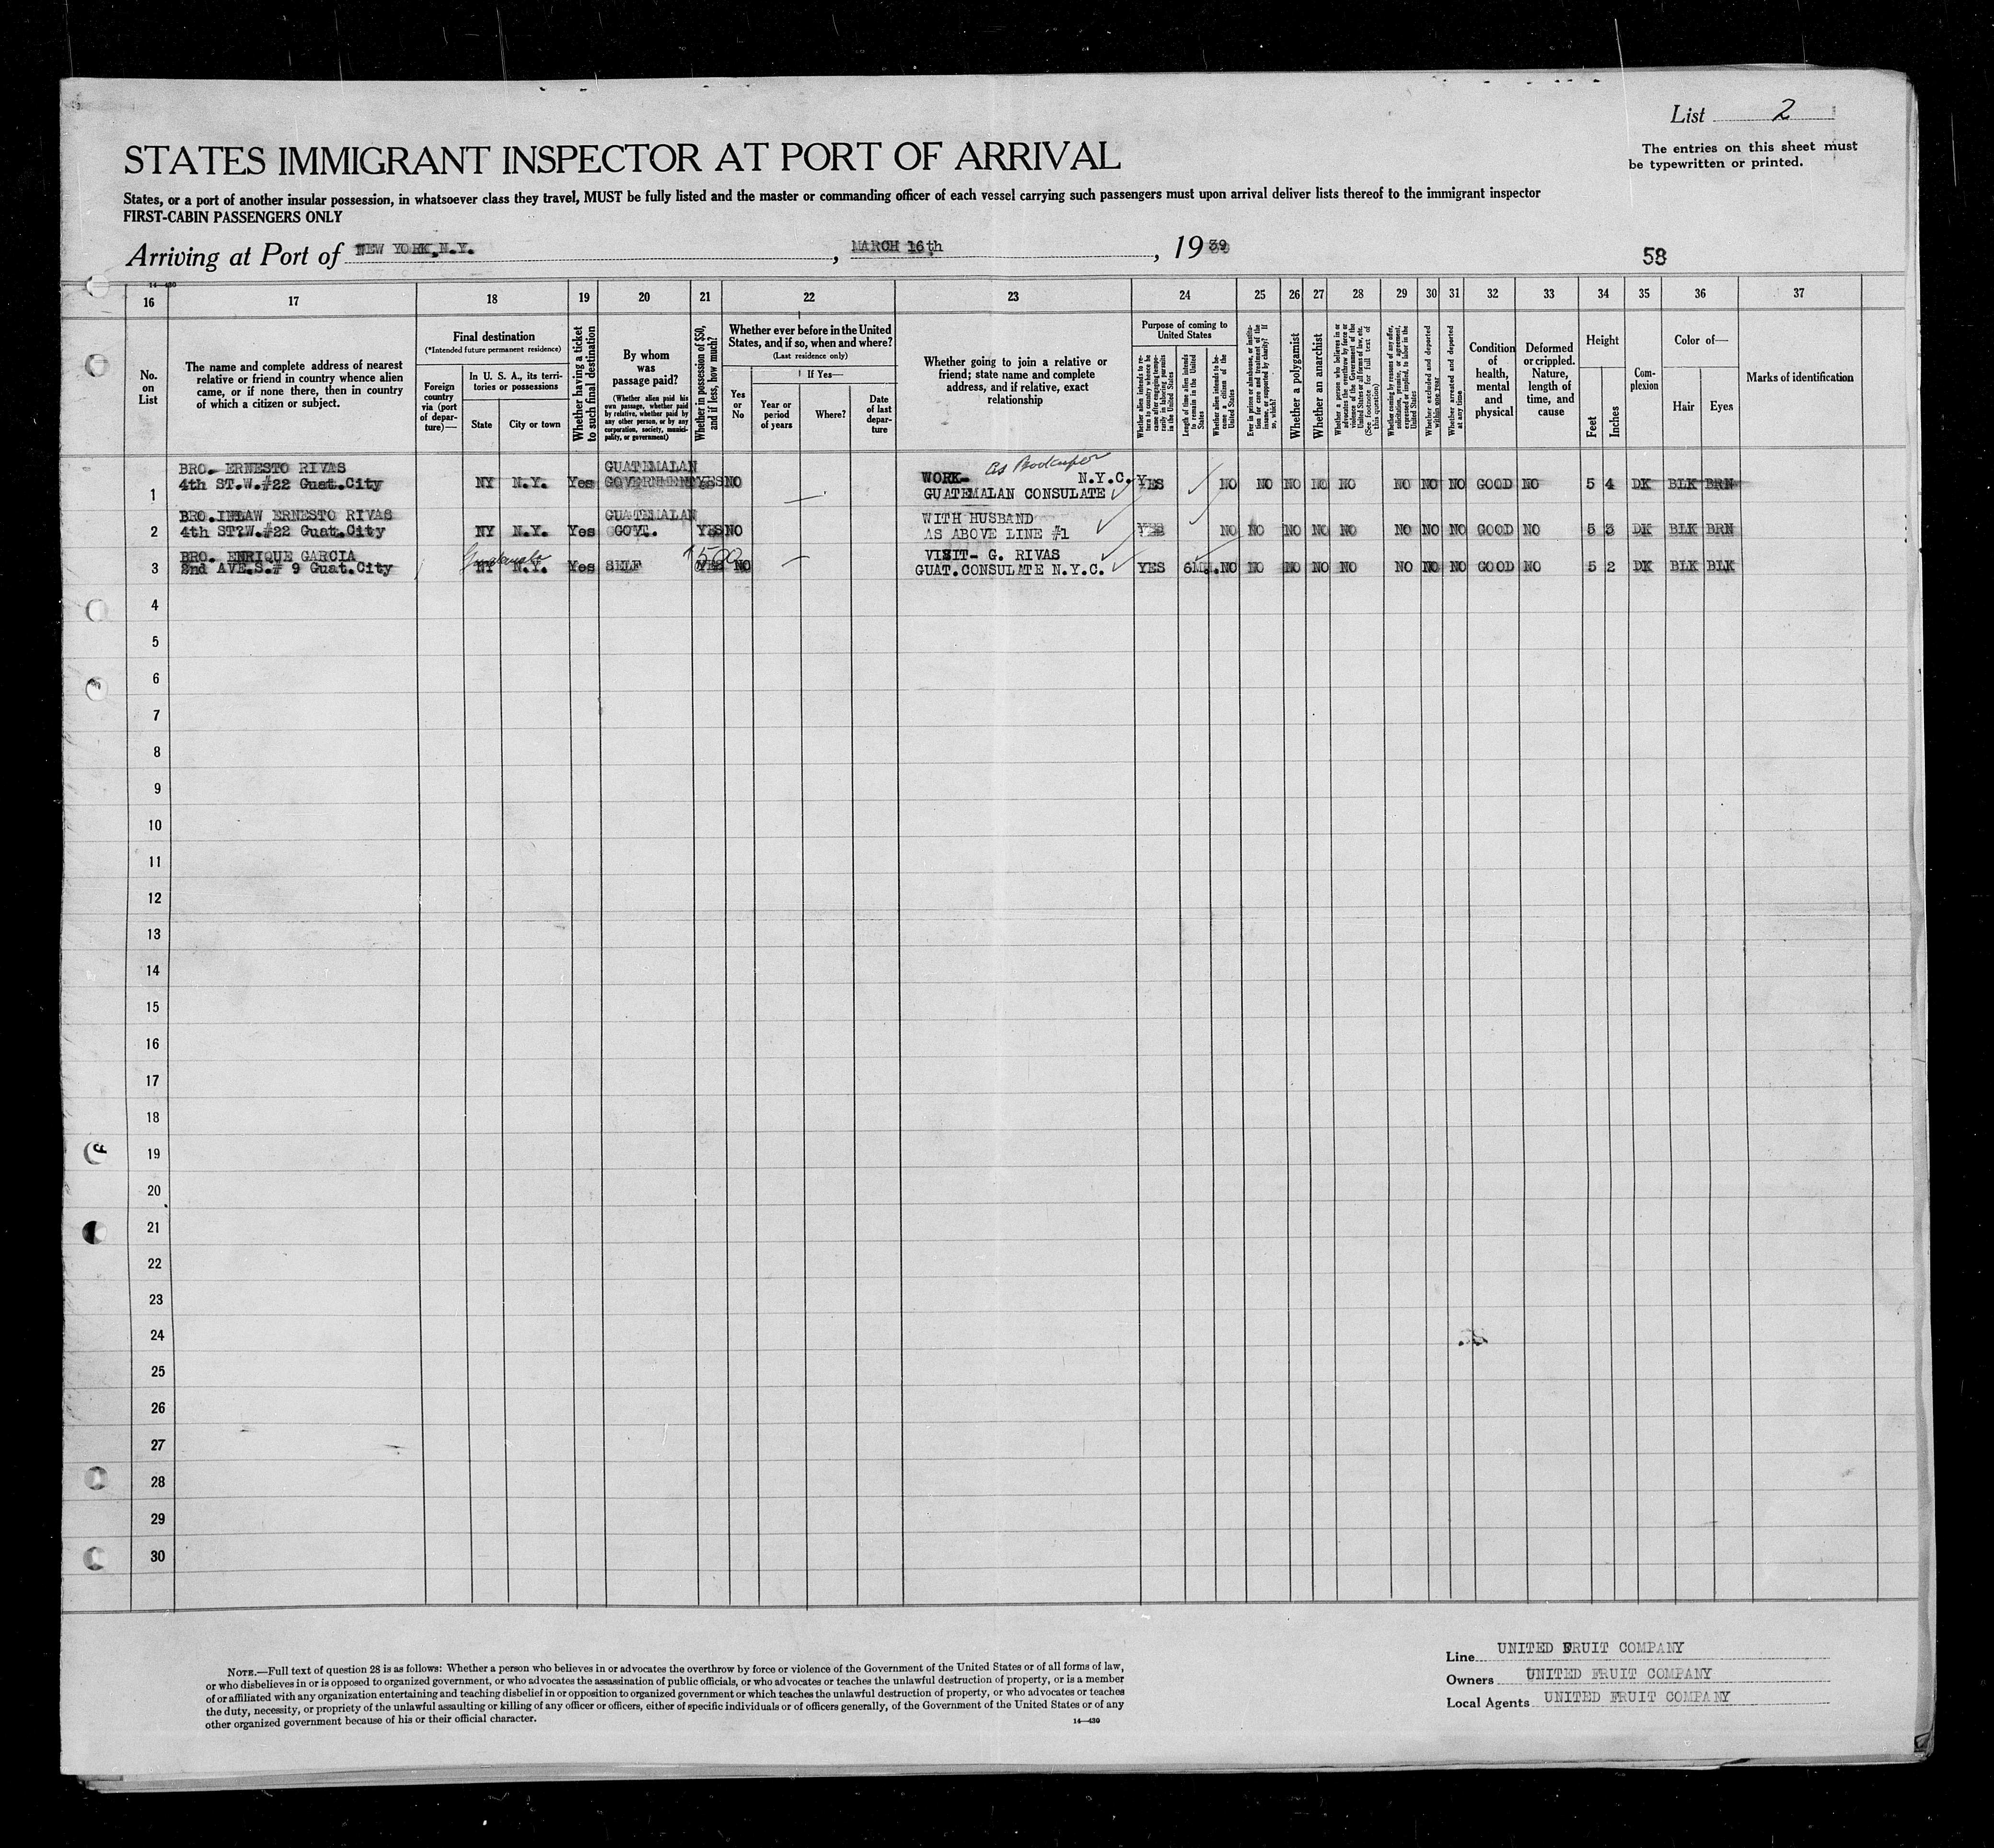 List 2
The entries on this sheet must
be typewritten or printed.
STATES IMMIGRANT INSPECTOR AT PORT OF ARRIVAL
States, or a port of another insular possession, in whatsoever class they travel, MUST be fully listed and the master or commanding officer of each vessel carrying such passengers must upon arrival deliver lists thereof to the immigrant inspector
FIRST-CABIN PASSENGERS ONLY
Arriving at Port of NEW YORK,N.Y. , MARCH 16th , 1939
58
14—430
16 17 18 19 20 21 22 23 24 25 26 27 28 29 30 31 32 33 34 35 36 37
No. on List
The name and complete address of nearest
relative or friend in country whence alien
came, or if none there, then in country
of which a citizen or subject.
Final destination
(*Intended future permanent residence)
Foreign country via (port of departure)—
In U. S. A., its territories or possessions
State
City or town
Whether having a ticket to such final destination
By whom was passage paid?
(Whether alien paid his own passage, whether paid by relative, whether paid by any other person, or by any corporation, society, municipality, or government)
Whether in possession of $50, and if less, how much?
Whether ever before in the United
States, and if so, when and where?
(Last residence only)
Yes or No
If Yes—
Year or period of years
Where?
Date of last departure
Whether going to join a relative or
friend; state name and complete
address, and if relative, exact
relationship
Purpose of coming to
United States
Whether alien intends to return to country whence he came after engaging temporarily in laboring pursuits in the United States
Length of time alien intends to remain in the United States
Whether alien intends to become a citizen of the United States
Ever in prison or almshouse, or institution for care and treatment of the insane, or supported by charity? If so, which?
Whether a polygamist
Whether an anarchist
Whether a person who believes in or advocates the overthrow by force or violence of the Government of the United States or all forms of law, etc. (See footnote for full text of this question)
Whether coming by reasons of any offer, solicitation, promise, or agreement, expressed or implied, to labor in the United States
Whether excluded and deported within one year
Whether arrested and deported at any time
Condition of health, mental and physical
Deformed or crippled. Nature, length of time, and cause
Height
Feet
Inches
Complexion
Color of—
Hair
Eyes
Marks of identification
BRO. ERNESTO RIVAS GUATEMALAN as Bookkeeper
1 4th ST.W.#22 Guat.City NY N.Y. Yes GOVERNMENT YES NO WORK- N.Y.C. YES NO NO NO NO NO NO NO NO GOOD NO 5 4 DK BLK BRN
GUATEMALAN CONSULATE
BRO.INLAW ERNESTO RIVAS GUATEMALAN WITH HUSBAND
2 4th ST?W.#22 Guat.City NY N.Y. Yes GOVT. YES NO AS ABOVE LINE #1 YES NO NO NO NO NO NO NO NO GOOD NO 5 3 DK BLK BRN
BRO. ENRIQUE GARCIA Guatemala 1500 VISIT- G. RIVAS
3 2nd AVE.S.# 9 Guat.City NY N.Y. Yes SELF YES NO GUAT.CONSULATE N.Y.C. YES 6M. NO NO NO NO NO NO NO NO GOOD NO 5 2 DK BLK BLK
4
5
6
7
8
9
10
11
12
13
14
15
16
17
18
19
20
21
22
23
24
25
26
27
28
29
30
NOTE.—Full text of question 28 is as follows: Whether a person who believes in or advocates the overthrow by force or violence of the Government of the United States or of all forms of law,
or who disbelieves in or is opposed to organized government, or who advocates the assassination of public officials, or who advocates or teaches the unlawful destruction of property, or is a member
of or affiliated with any organization entertaining and teaching disbelief in or opposition to organized government or which teaches the unlawful destruction of property, or who advocates or teaches
the duty, necessity, or propriety of the unlawful assaulting or killing of any officer or officers, either of specific individuals or of officers generally, of the Government of the United States or of any
other organized government because of his or their official character.
14—430
Line UNITED FRUIT COMPANY
Owners UNITED FRUIT COMPANY
Local Agents UNITED FRUIT COMPANY